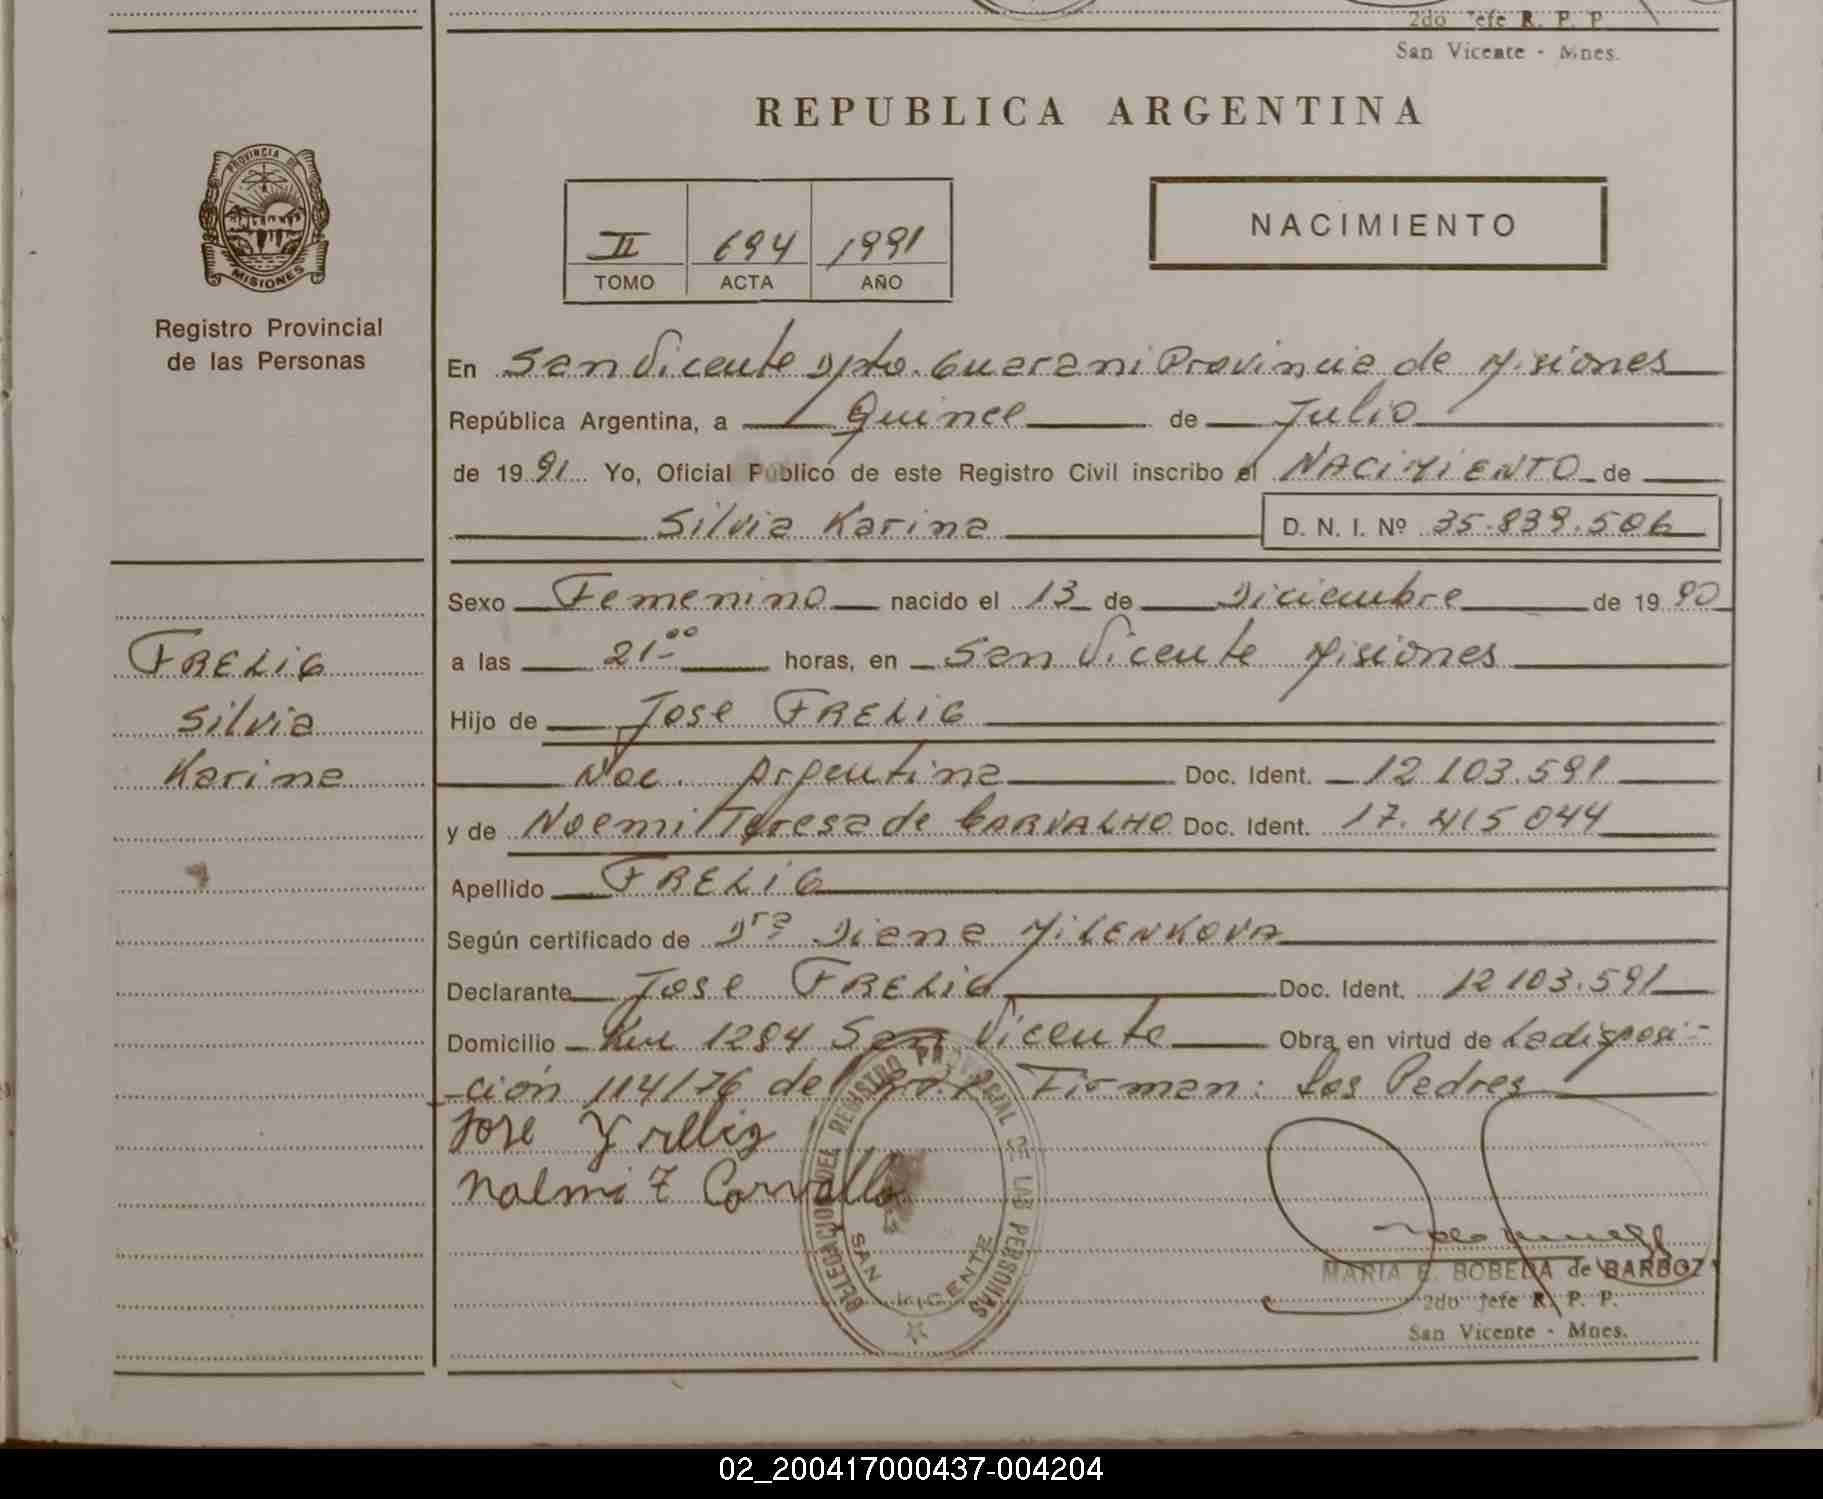 2do Jefe R. P. P.
San Vicente - Mnes.
REPUBLICA ARGENTINA
PROVINCIA DE
MISIONES
Registro Provincial
de las Personas
II 694 1991
TOMO ACTA AÑO
NACIMIENTO
En San Vicente Dpto. Guarani Provincia de Misiones
República Argentina, a Quince de Julio
de 1991 Yo, Oficial Público de este Registro Civil inscribo el NACIMIENTO de
Silvia Karina D. N. I. Nº 35.839.506
Sexo Femenino nacido el 13 de Diciembre de 1990
a las 21⁰⁰ horas, en San Vicente Misiones
Hijo de Jose FRELIG
Nac. Argentina Doc. Ident. 12 103.591
y de Noemi Teresa de CARVALHO Doc. Ident. 17. 415 044
Apellido FRELIG
Según certificado de Dra Diana MILENKOVA
Declarante Jose FRELIG Doc. Ident. 12 103.591
Domicilio Km 1284 San Vicente Obra en virtud de La disposi-
-ción 114/76 del Firman: Los Padres
FRELIG
Silvia
Karina
Jose
Noemi T Carvallo
DELEGACION DEL REGISTRO PROVINCIAL DE LAS PERSONAS
SAN VICENTE
MARIA E. BOBEDA de BARBOZ
2do Jefe R. P. P.
San Vicente - Mnes.
02_200417000437-004204